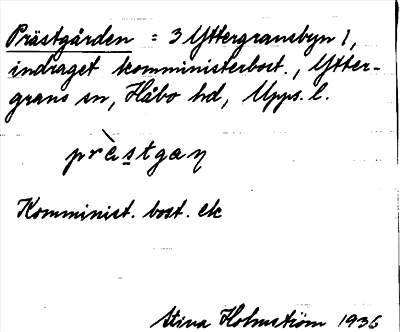 Prästgården = 3 Yttergransbyn 1,
indraget komministerbost., Ytter-
grans sn, Håbo hd, Upps. l.
prὰstgaɳ
Komminist. bost. ek
Stina Holmström 1936